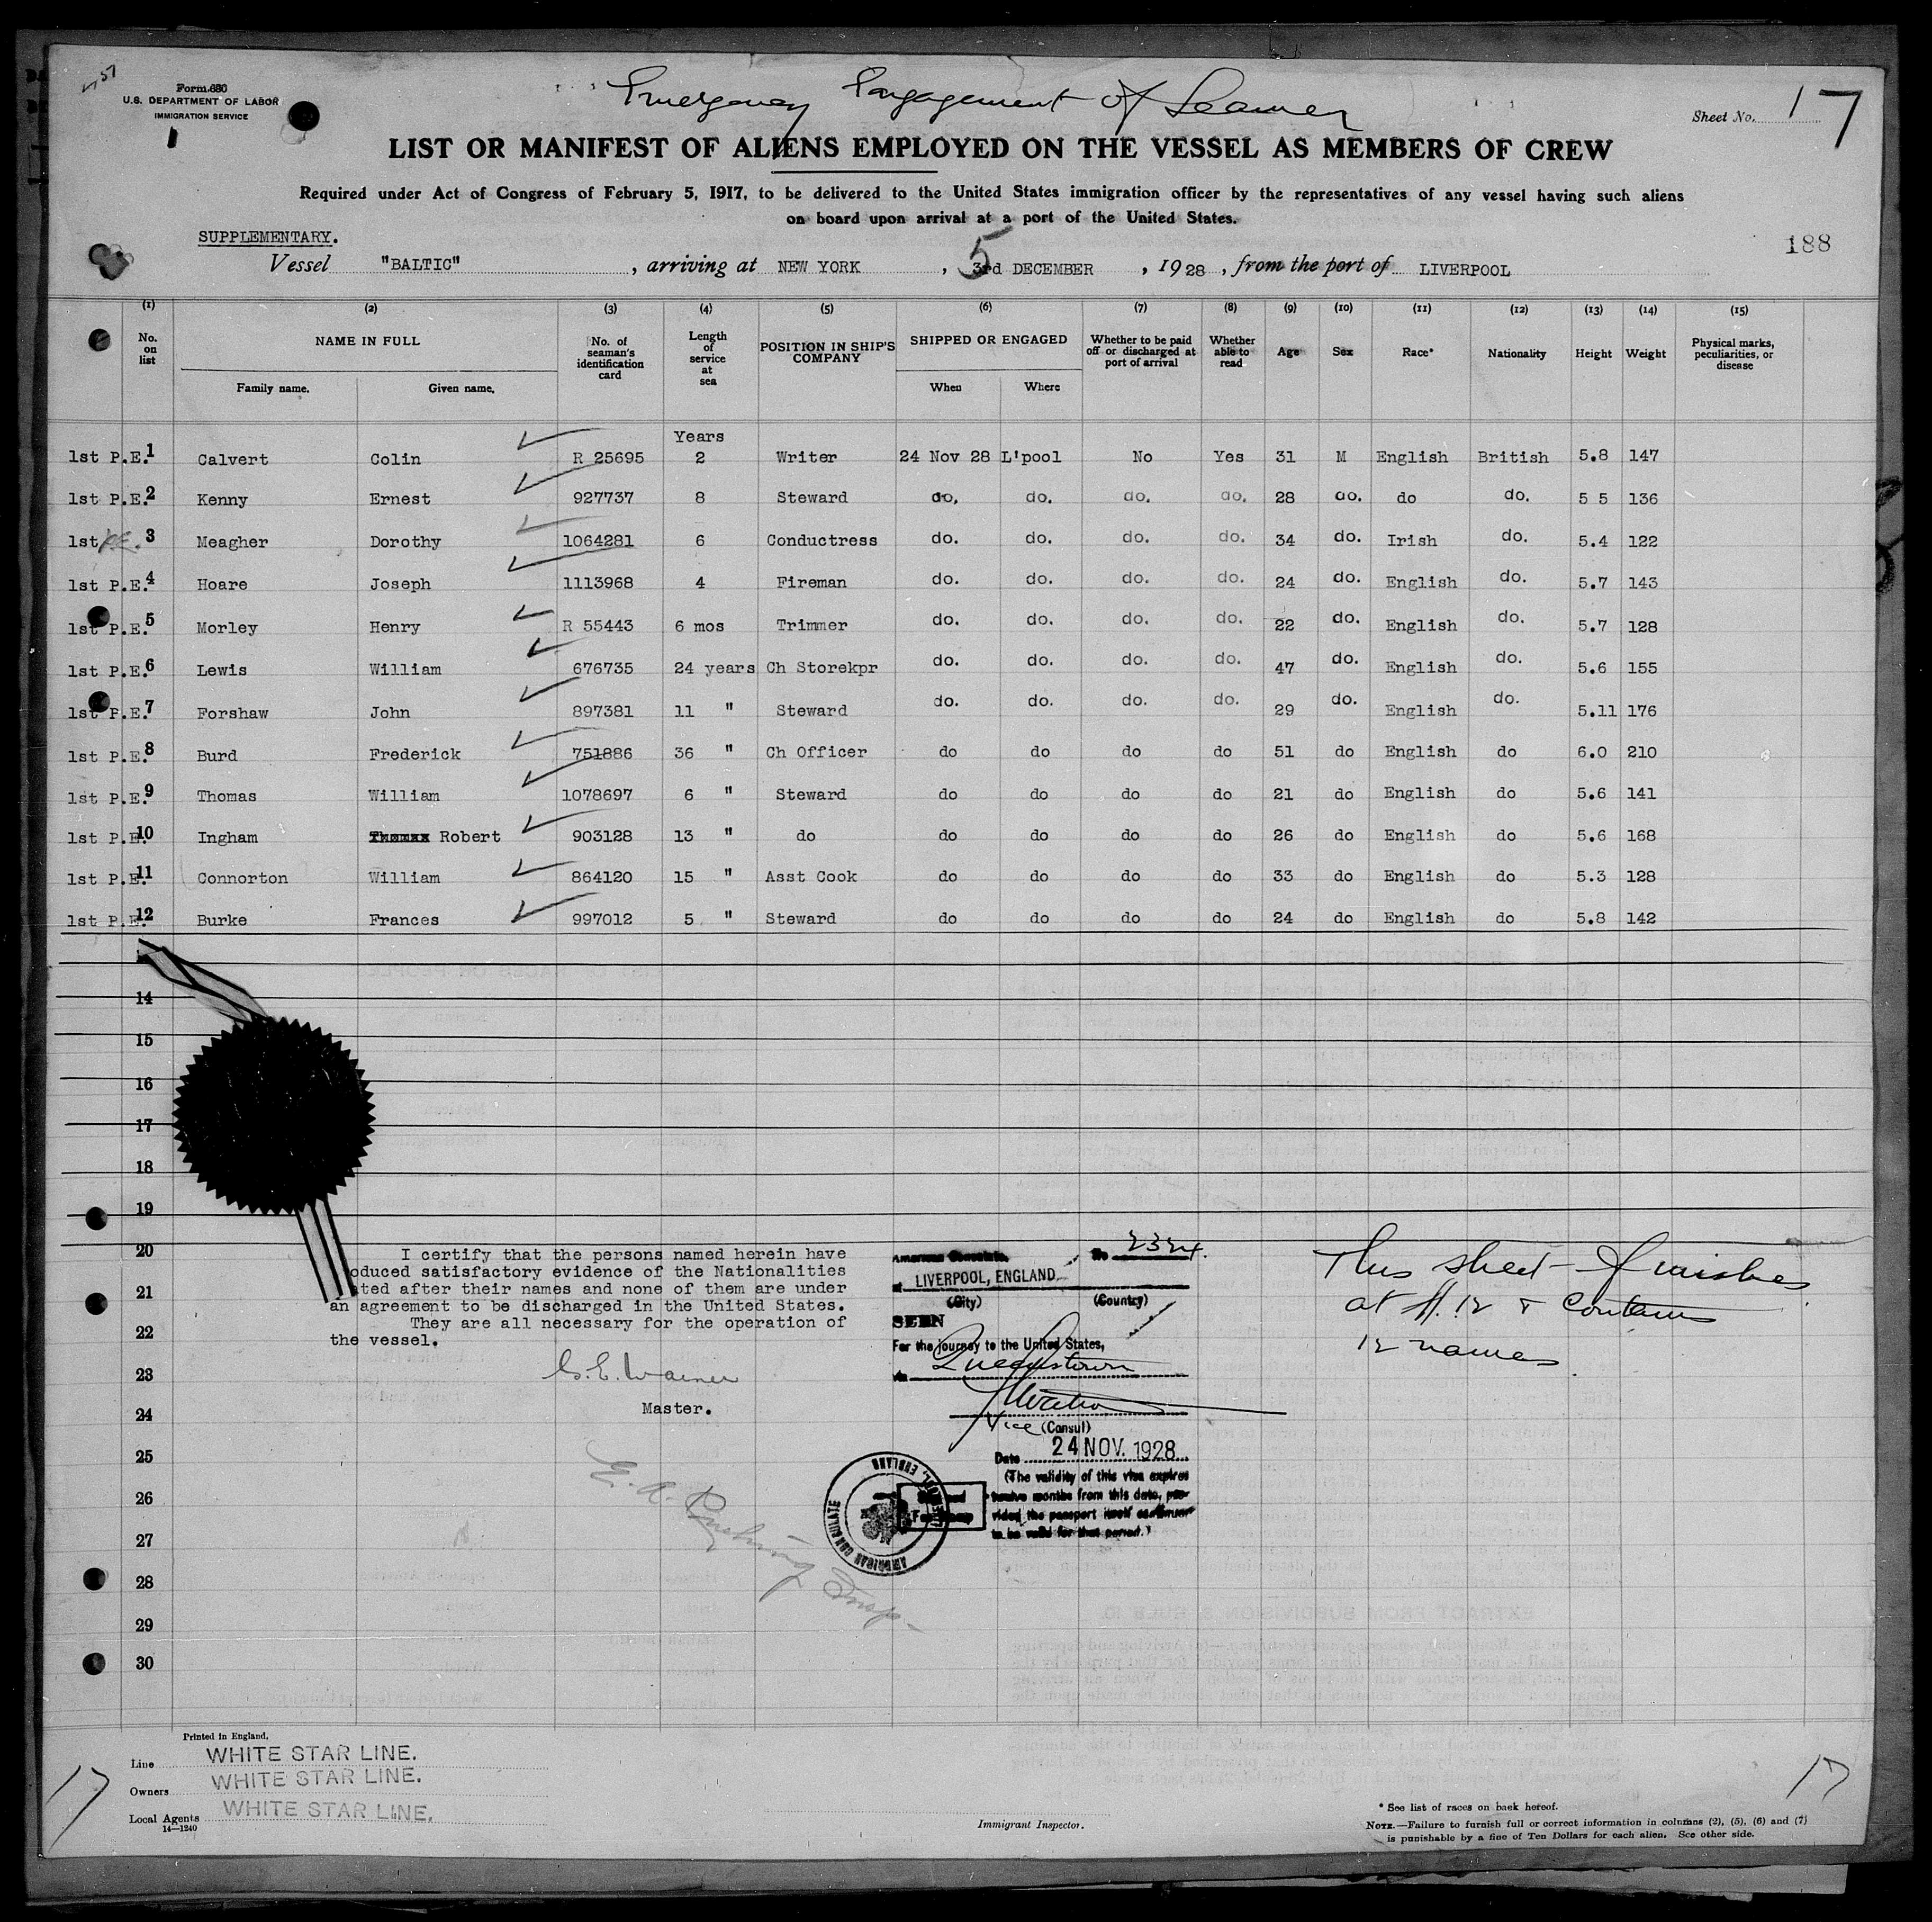 Form 680
U.S. DEPARTMENT OF LABOR
IMMIGRATION SERVICE
Emergency Engagement of Seamen
Sheet No. 17
LIST OR MANIFEST OF ALIENS EMPLOYED ON THE VESSEL AS MEMBERS OF CREW
Required under Act of Congress of February 5, 1917, to be delivered to the United States immigration officer by the representatives of any vessel having such aliens
on board upon arrival at a port of the United States.
SUPPLEMENTARY.
188
Vessel "BALTIC", arriving at NEW YORK, 5 3rd DECEMBER, 1928, from the port of LIVERPOOL
(1) (2) (3) (4) (5) (6) (7) (8) (9) (10) (11) (12) (13) (14) (15)
No. on list NAME IN FULL No. of seaman's identification card Length of service at sea POSITION IN SHIP'S COMPANY SHIPPED OR ENGAGED Whether to be paid off or discharged at port of arrival Whether able to read Age Sex Race* Nationality Height Weight Physical marks, peculiarities, or disease
Family name. Given name. When Where
Years
1st P.E. 1 Calvert Colin R 25695 2 Writer 24 Nov 28 L'pool No Yes 31 M English British 5.8 147
1st P.E. 2 Kenny Ernest 927737 8 Steward do. do. do. do. 28 do. do do. 5 5 136
1st P.E. 3 Meagher Dorothy 1064281 6 Conductress do. do. do. do. 34 do. Irish do. 5.4 122
1st P.E. 4 Hoare Joseph 1113968 4 Fireman do. do. do. do. 24 do. English do. 5.7 143
1st P.E. 5 Morley Henry R 55443 6 mos Trimmer do. do. do. do. 22 do. English do. 5.7 128
1st P.E. 6 Lewis William 676735 24 years Ch Storekpr do. do. do. do. 47 do. English do. 5.6 155
1st P.E. 7 Forshaw John 897381 11 " Steward do. do. do. do. 29 do. English do. 5.11 176
1st P.E. 8 Burd Frederick 751886 36 " Ch Officer do do do do 51 do English do 6.0 210
1st P.E. 9 Thomas William 1078697 6 " Steward do do do do 21 do English do 5.6 141
1st P.E. 10 Ingham Robert 903128 13 " do do do do do 26 do English do 5.6 168
1st P.E. 11 Connorton William 864120 15 " Asst Cook do do do do 33 do English do 5.3 128
1st P.E. 12 Burke Frances 997012 5 " Steward do do do do 24 do English do 5.8 142
14
15
16
17
18
19
20
21
22
23
24
25
26
27
28
29
30
I certify that the persons named herein have
oduced satisfactory evidence of the Nationalities
ted after their names and none of them are under
an agreement to be discharged in the United States.
They are all necessary for the operation of
the vessel.
Master.
American Consulate No 2324.
at LIVERPOOL, ENGLAND
(City) (Country)
SEEN
For the journey to the United States,
via Queenstown
Vice (Consul)
Date 24 NOV. 1928
(The validity of this visa expires
twelve months from this date, pro-
vided the passport itself continues
to be valid for that period.)
AMERICAN CONSULATE LIVERPOOL, ENGLAND
This sheet finishes
at #. 12 & contains
12 names
Printed in England.
Line WHITE STAR LINE.
Owners WHITE STAR LINE.
Local Agents WHITE STAR LINE.
14—1240
17
Immigrant Inspector.
17
* See list of races on back hereof.
NOTE.—Failure to furnish full or correct information in columns (2), (5), (6) and (7)
is punishable by a fine of Ten Dollars for each alien. See other side.